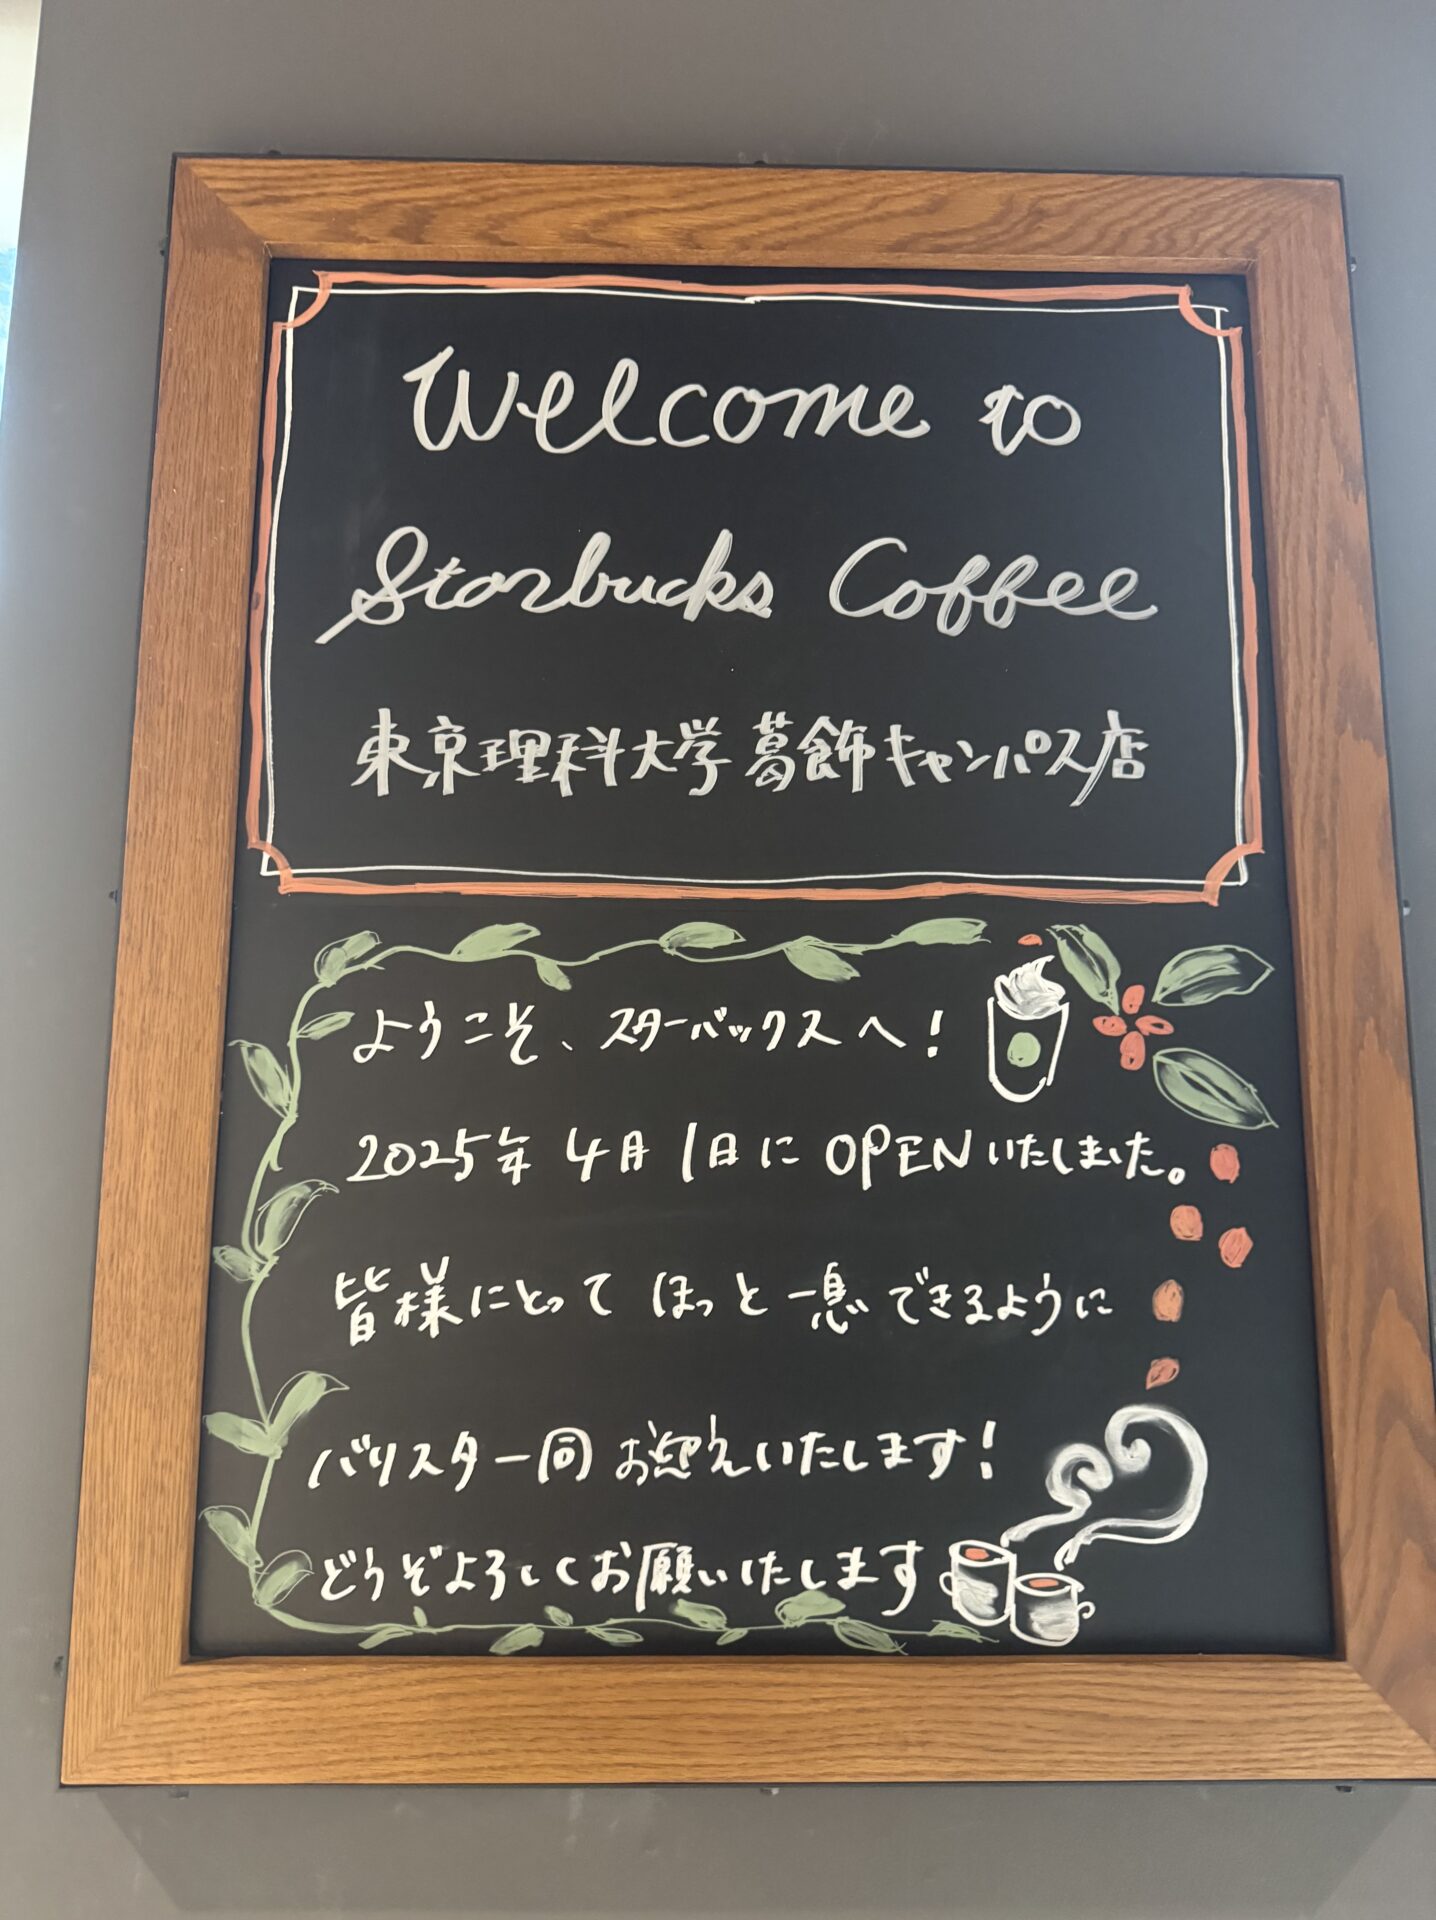 Welcome to
Starbucks Coffee
東京理科大学 葛飾キャンパス店
ようこそ、スターバックスへ！
2025年 4月 1日に OPENいたしました。
皆様にとって ほっと 一息 できるように
バリスタ一同 お迎えいたします！
どうぞよろしくお願いいたします